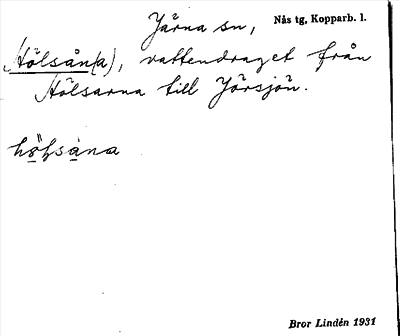 Järna sn, Nås tg, Kopparb. l.
Hölsån(a), vattendraget från
Hölsarna till Yörsjön.
hö̀ɫsȧna
Bror Lindén 1931